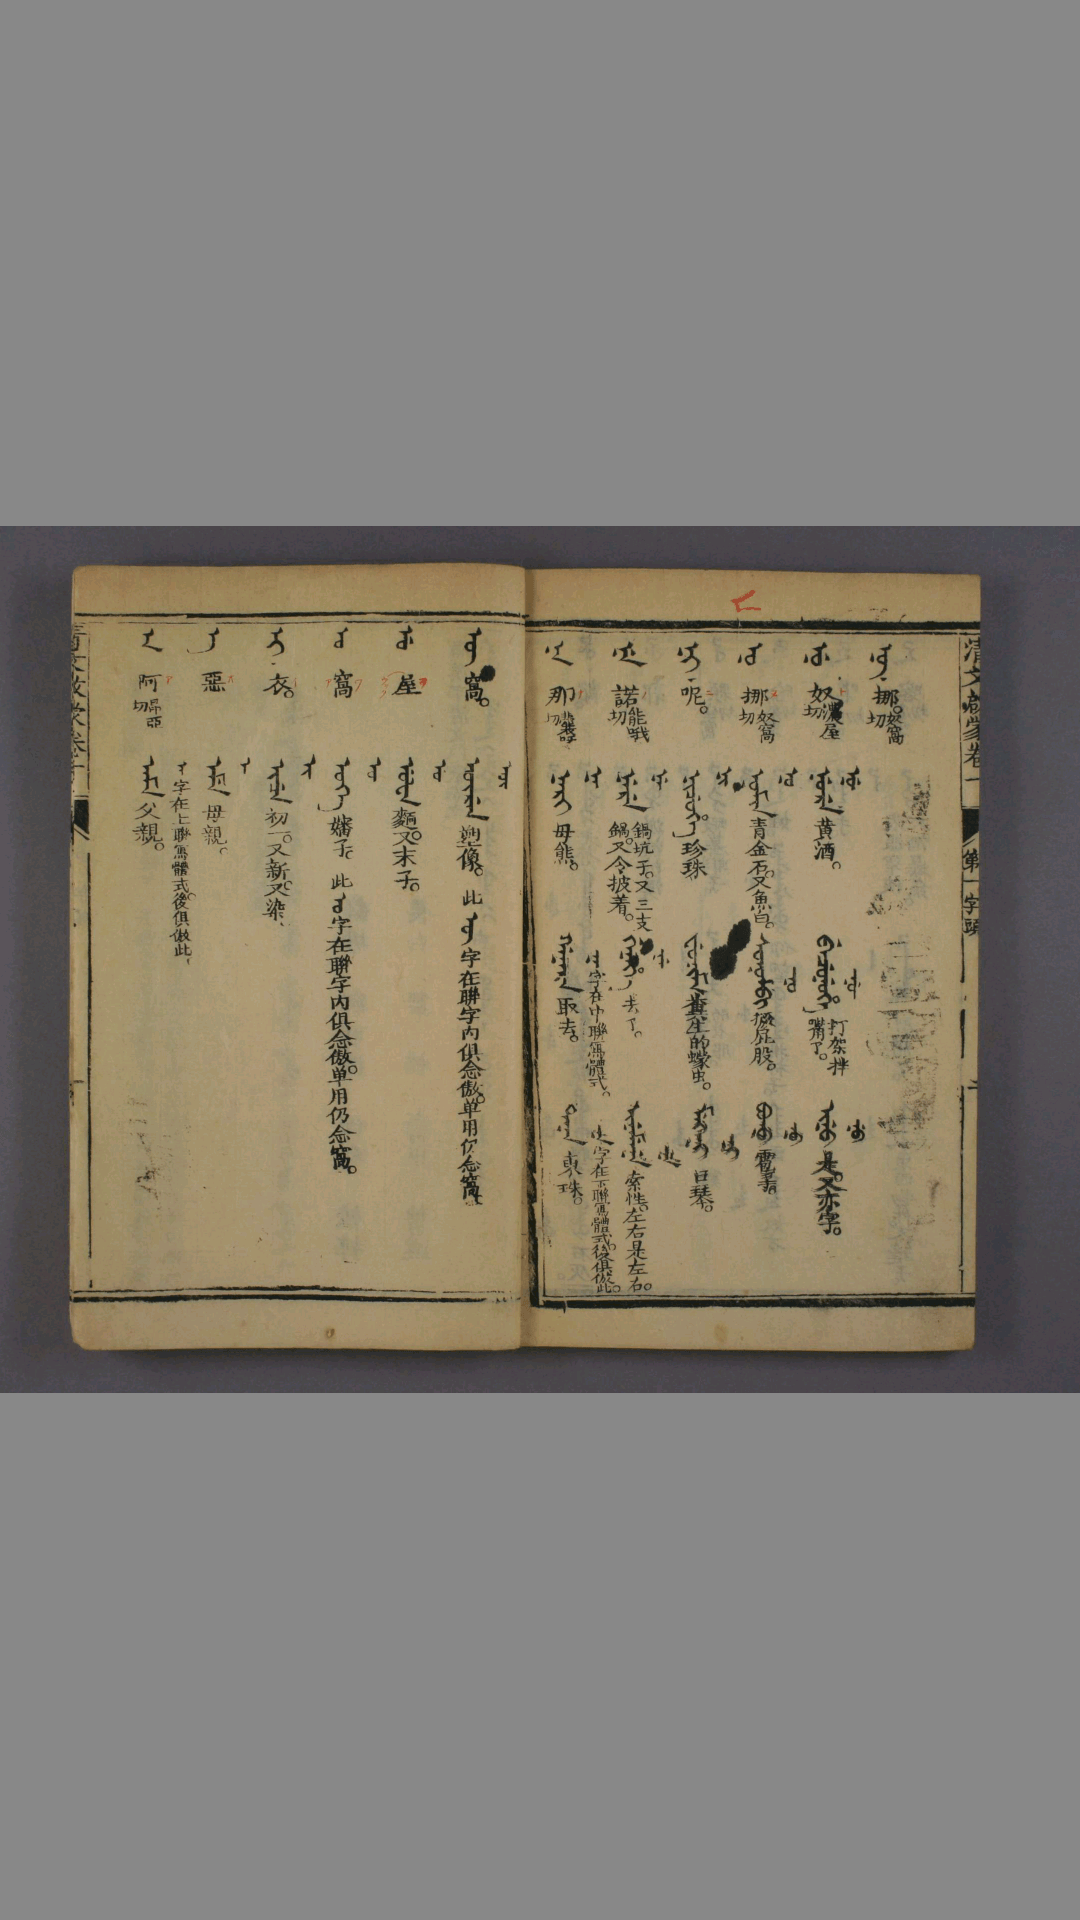 ᠠ 阿 昂亞切 ᠠᠮᠠ 父親。
字在上聯寫體式。後俱倣此
ᡝ 惡 ᡝᠮᡝ 母親。
ᡳ 衣。 ᡳᠴᡝ 初一。又新。又染
ᠣ 窩 ᠣᡴᡝ 嬸子。此ᠣ字在聯字内俱念傲。单用仍念窩。
ᡠ 屋 ᡠᡶᠠ 麵。又末子。
ᡡ 窩。 塑像。此ᡡ字在聯字内俱念傲。单用仍念窩
ᠨᠠ 那 切 ᠨᠠᠰᡳᠨ 母熊。 ᡤᠠᠨᠠ 取去。 ᡨᠠᠨᠠ 東珠。
字在中聯寫體式。 字在下聯寫體式。後俱倣此。
ᠨᡝ 諾 能哦切 ᠨᡝᡵᡝ 鍋坑子。又三支鍋。又令披着。 ᡤᡝᠨᡝᡥᡝ 去了。 索性。左右是左右。
ᠨᡳ 呢。 ᠨᡳᠴᡠᡥᡝ 珍珠 糞生的蠓虫。
ᠨᠣ 挪 奴窩切 ᠨᠣᠮᡳᠨ 青金石。又魚白。 撅屁股。 ᠪᠣᠨᠣ 雹
ᠨᡠ 奴 濃屋切 ᠨᡠᡵᡝ 黄酒。 ᠪᡝᠴᡠᠨᡠᡥᡝ 打架拌嘴了。 ᡳᠨᡠ 是。又亦字。
ᠨᡡ 挪。 奴窩切
清文啟蒙卷一 第一字頭